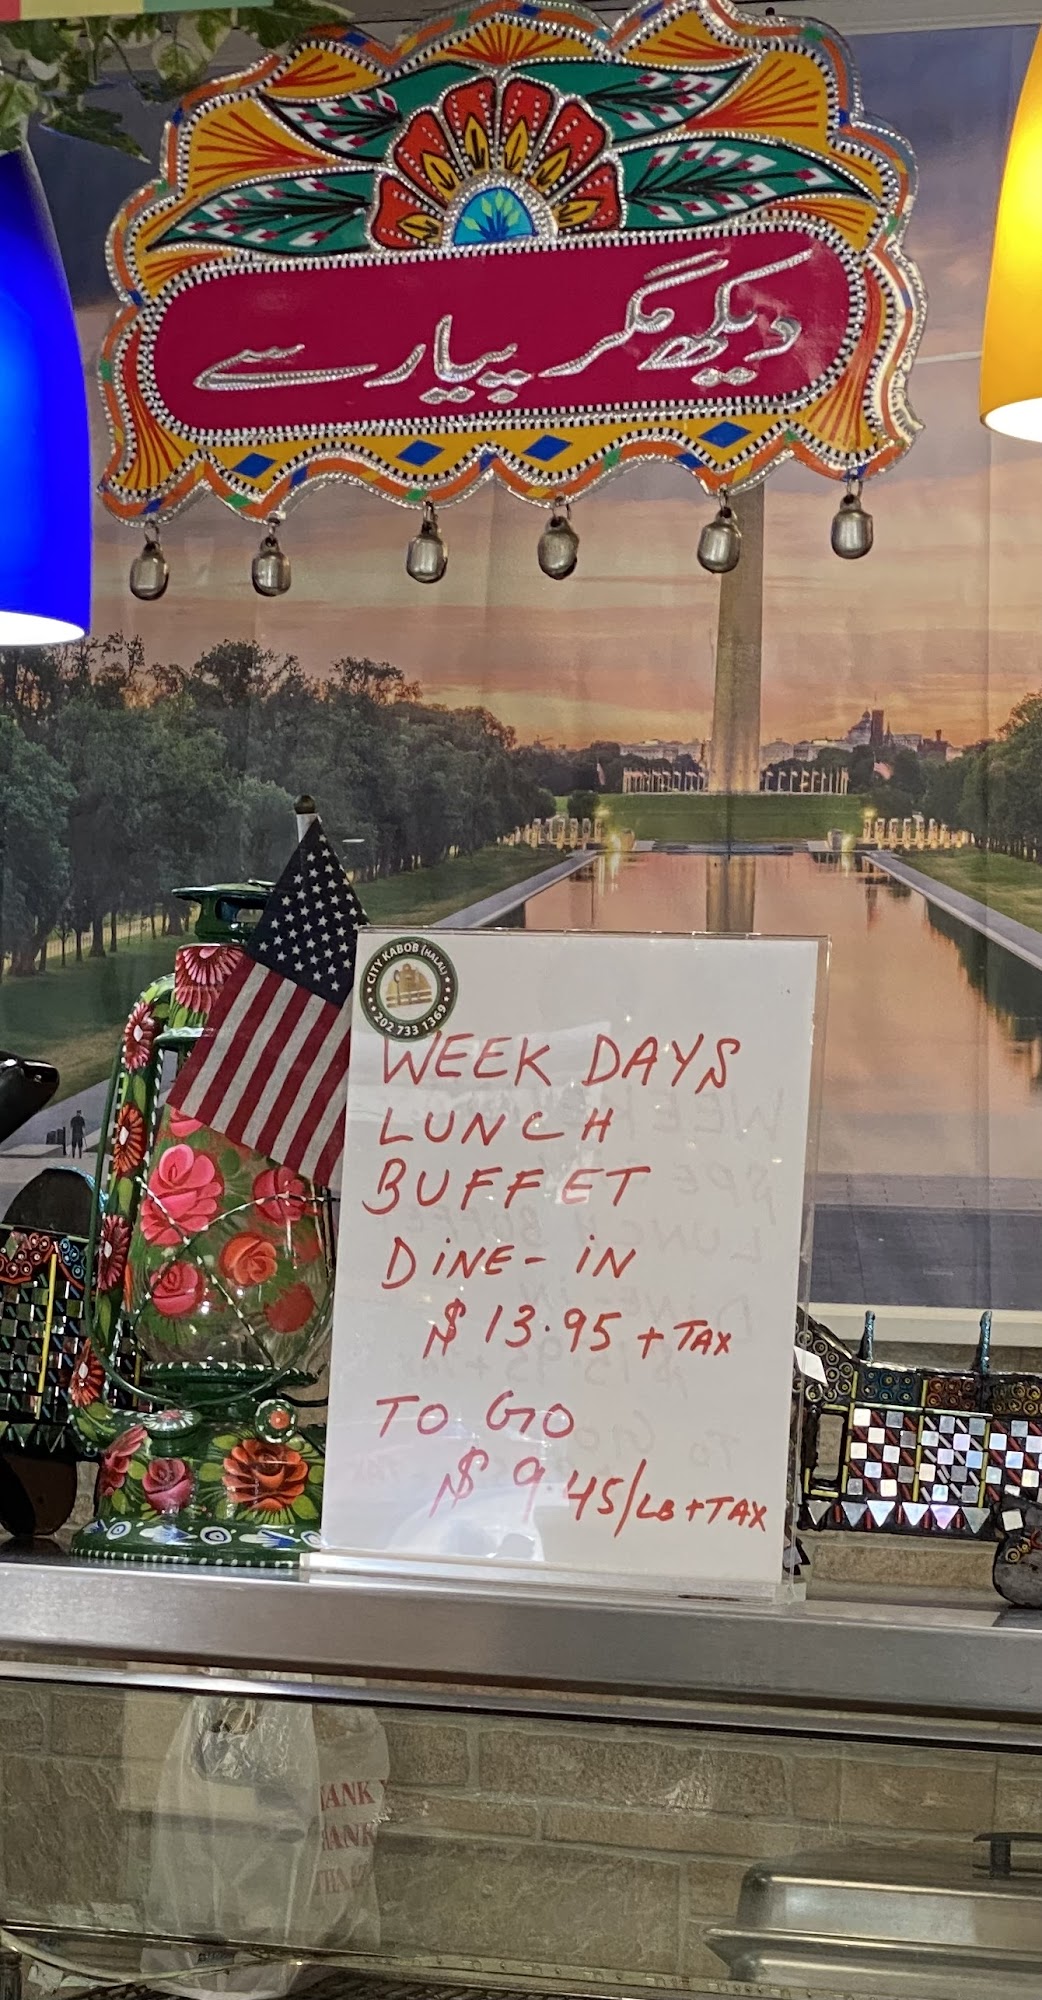 دیکھ مگر پیار سے
CITY KABOB (HALAL)
202 733 1369
WEEK DAYS
LUNCH
BUFFET
DiNE-iN
$13.95 + TAX
TO GO
$9 45/LB + TAX